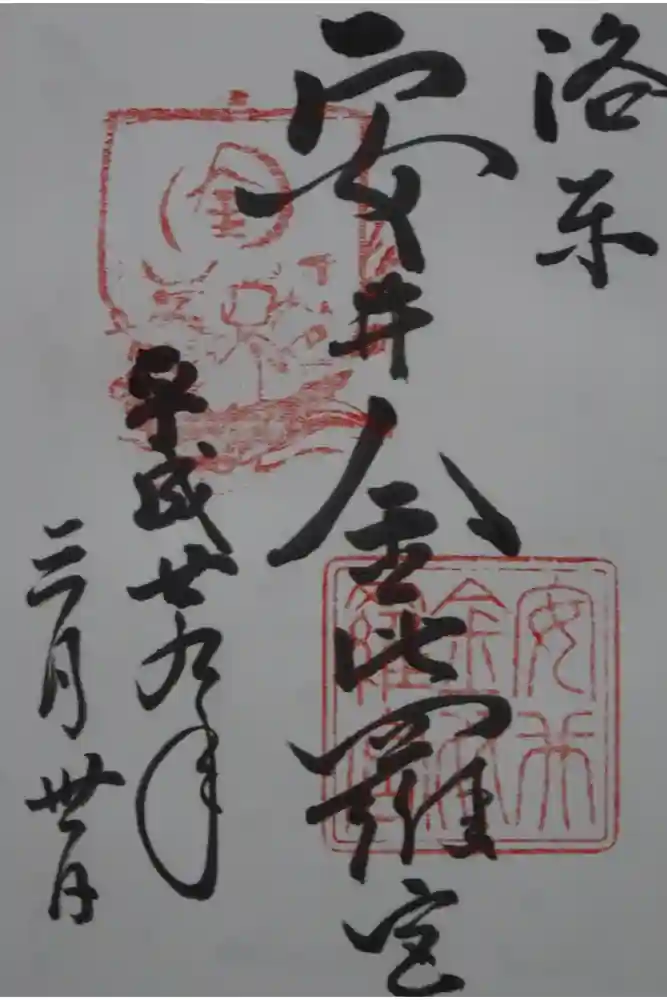 洛东
安井金比羅宮
平成廿九年
三月卅日
安井
金比
羅宮
金